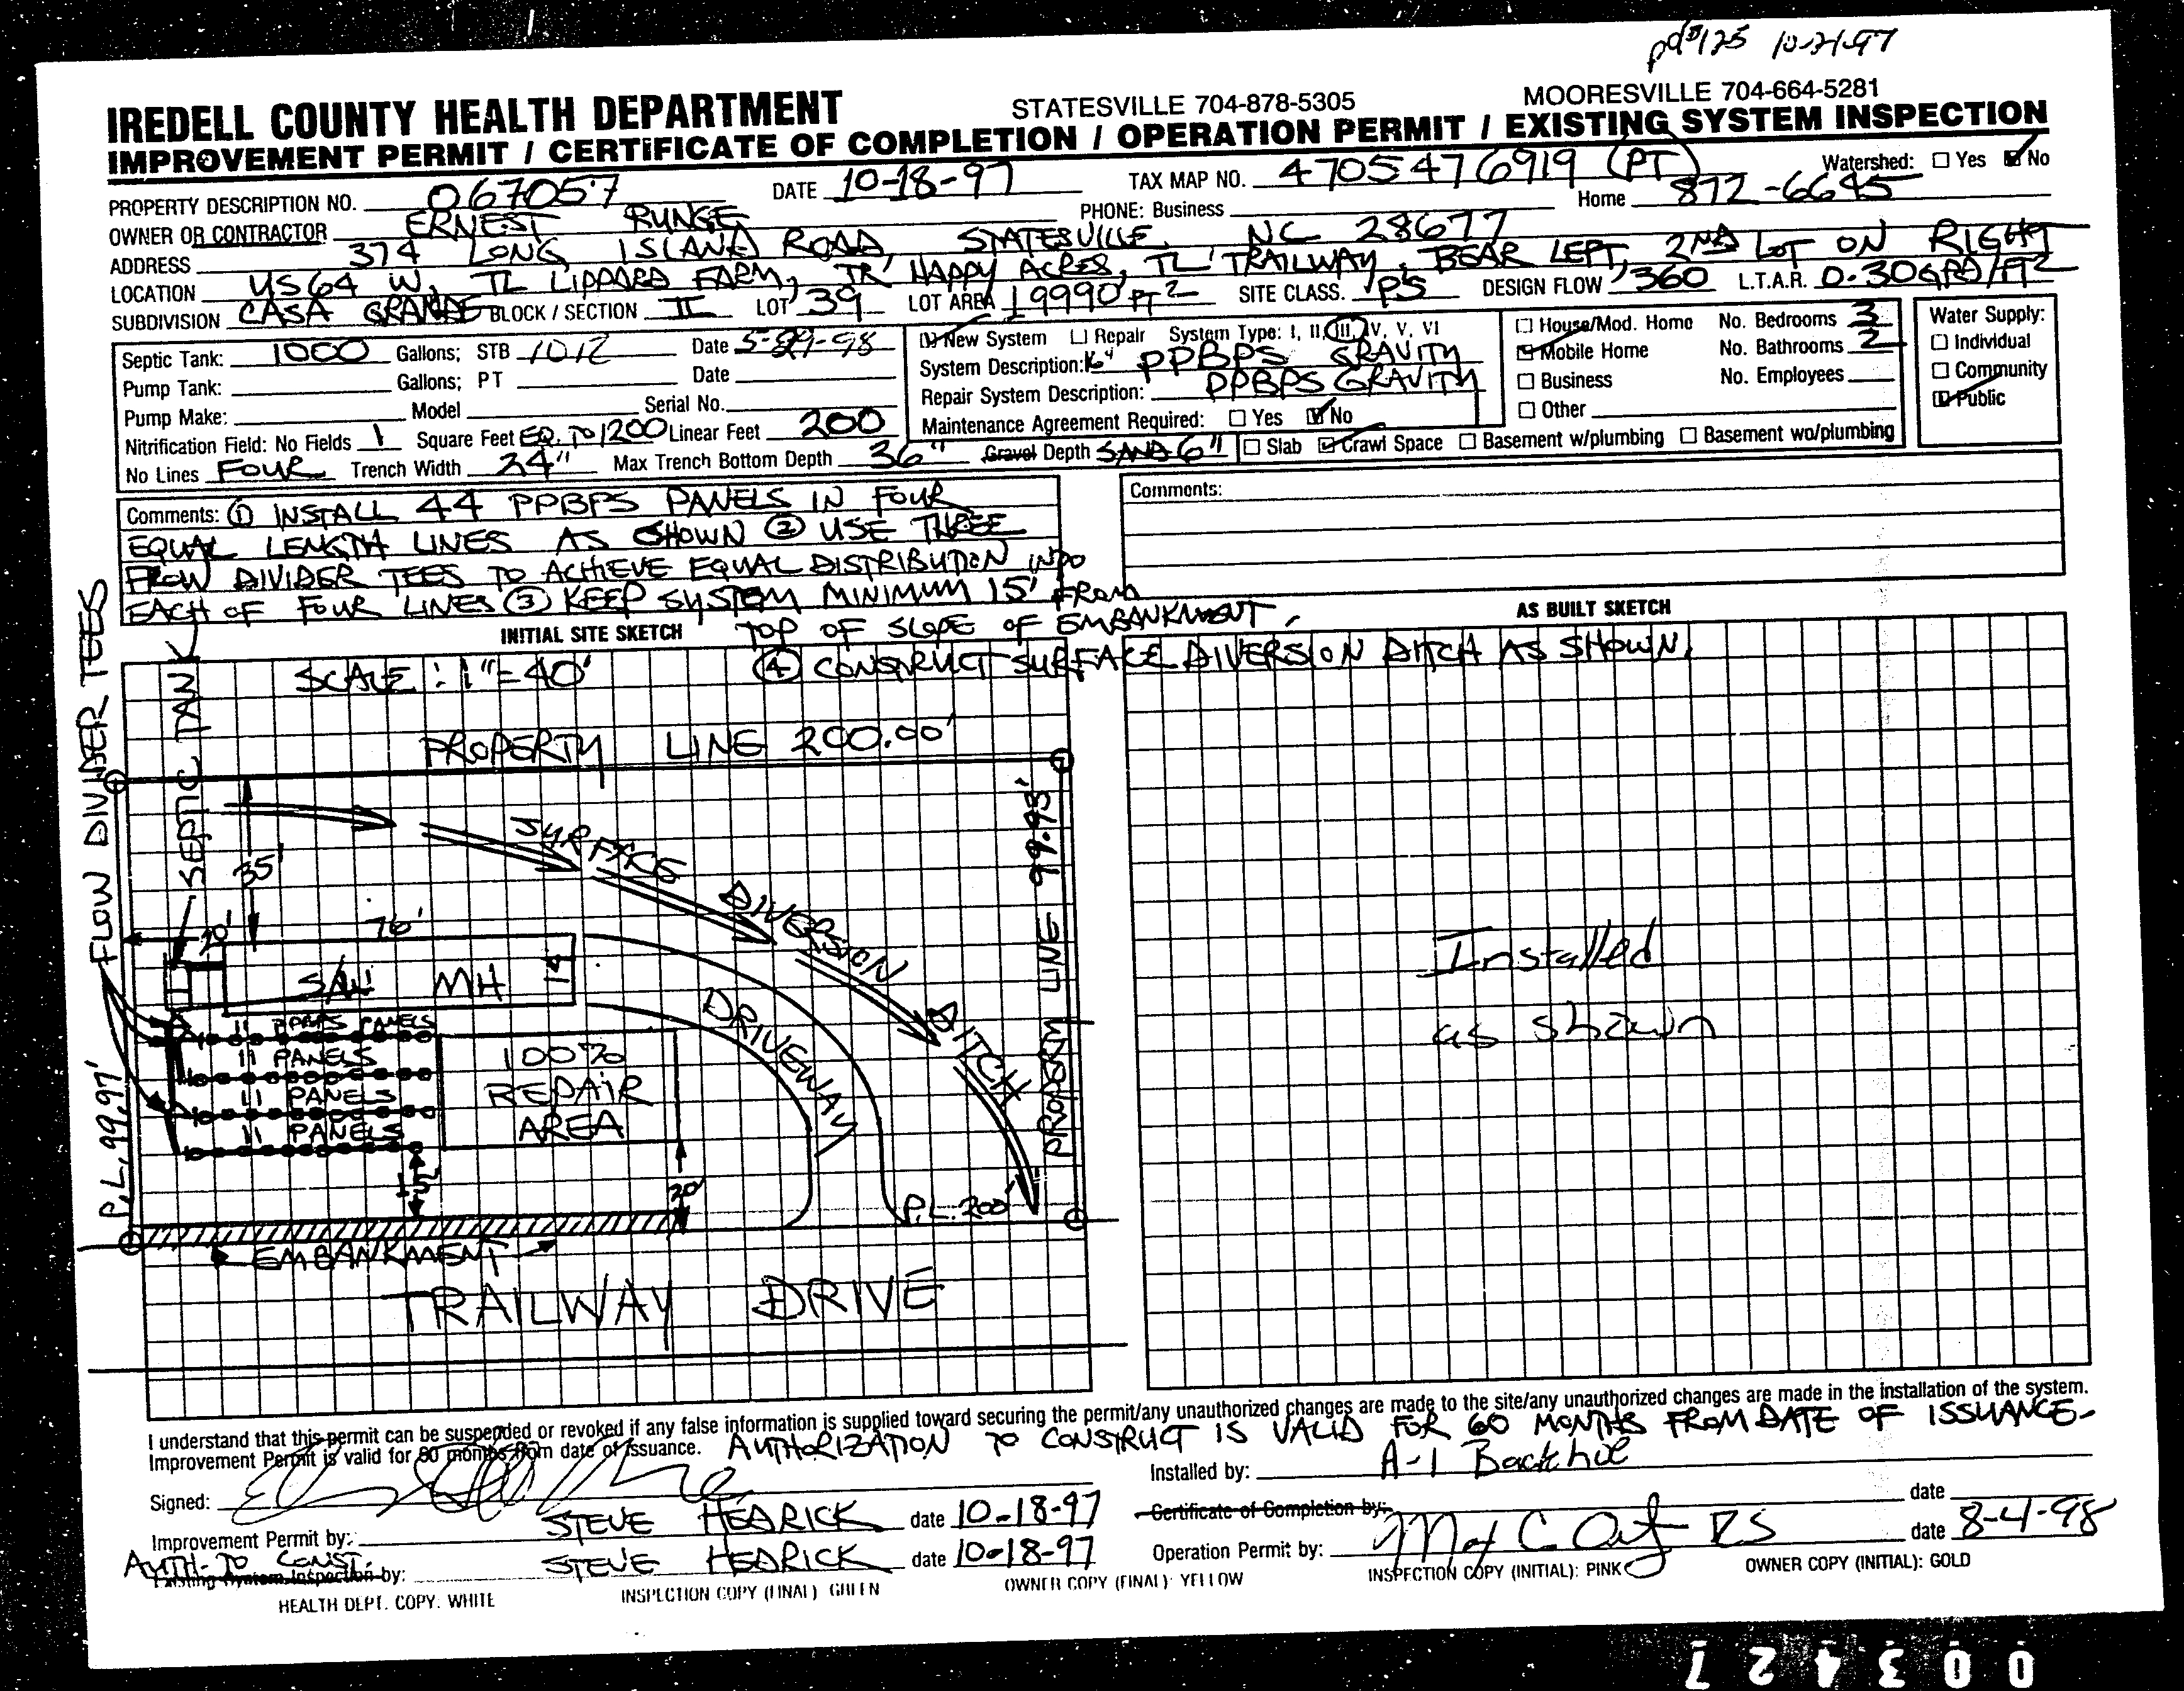 pd $125 10-21-97
IREDELL COUNTY HEALTH DEPARTMENT STATESVILLE 704-878-5305 MOORESVILLE 704-664-5281
IMPROVEMENT PERMIT / CERTIFICATE OF COMPLETION / OPERATION PERMIT / EXISTING SYSTEM INSPECTION
PROPERTY DESCRIPTION NO. 067057 DATE 10-18-97 TAX MAP NO. 4705476919 (PT) Watershed: Yes No
OWNER OR CONTRACTOR ERNEST RUNGE PHONE: Business Home 872-6695
ADDRESS 374 LONG ISLAND ROAD, STATESVILLE, NC 28677
LOCATION US 64 W, TL LIPPARD FARM, TR HAPPY ACRES, TL TRAILWAY, BEAR LEFT, 2ND LOT ON RIGHT
SUBDIVISION CASA GRANDE BLOCK / SECTION II LOT 39 LOT AREA 19990 FT2 SITE CLASS. PS DESIGN FLOW 360 L.T.A.R. 0.30 GPD/FT2
Septic Tank: 1000 Gallons; STB 1012 Date 5-29-98
Pump Tank: Gallons; PT Date
Pump Make: Model Serial No.
Nitrification Field: No Fields 1 Square Feet EQ. TO 1200 Linear Feet 200
No Lines FOUR Trench Width 24" Max Trench Bottom Depth 36" Gravel Depth SAND 6"
New System Repair System Type: I, II, III, IV, V, VI
System Description: 16" PPBPS GRAVITY
Repair System Description: PPBPS GRAVITY
Maintenance Agreement Required: Yes No
House/Mod. Home No. Bedrooms 3
Mobile Home No. Bathrooms 2
Business No. Employees
Other
Slab Crawl Space Basement w/plumbing Basement wo/plumbing
Water Supply:
Individual
Community
Public
Comments: ① INSTALL 44 PPBPS PANELS IN FOUR
EQUAL LENGTH LINES AS SHOWN ② USE THREE
FLOW DIVIDER TEES TO ACHIEVE EQUAL DISTRIBUTION INTO
EACH OF FOUR LINES ③ KEEP SYSTEM MINIMUM 15' FROM
TOP OF SLOPE OF EMBANKMENT.
④ CONSTRUCT SURFACE DIVERSION DITCH AS SHOWN.
Comments:
INITIAL SITE SKETCH
AS BUILT SKETCH
SCALE: 1"=40'
FLOW DIVIDER TEES
SEPTIC TANK
PROPERTY LINE 200.00'
SURFACE DIVERSION DITCH
PROPERTY LINE 99.93'
35'
20'
76'
MH
14'
DRIVEWAY
11 PPBPS PANELS
11 PANELS
11 PANELS
11 PANELS
100%
REPAIR
AREA
15'
20'
P.L. 99.97'
P.L. 200'
EMBANKMENT
TRAILWAY DRIVE
Installed
as shown
I understand that this permit can be suspended or revoked if any false information is supplied toward securing the permit/any unauthorized changes are made to the site/any unauthorized changes are made in the installation of the system.
Improvement Permit is valid for 60 months from date of issuance. AUTHORIZATION TO CONSTRUCT IS VALID FOR 60 MONTHS FROM DATE OF ISSUANCE.
Signed:
Installed by: A-1 Backhoe
Improvement Permit by: STEVE HEDRICK date 10-18-97
Certificate of Completion by: date
AUTH. TO CONST.
Existing System Inspection by: STEVE HEDRICK date 10-18-97
Operation Permit by: RS date 8-4-98
HEALTH DEPT. COPY: WHITE INSPECTION COPY (FINAL) GREEN OWNER COPY (FINAL): YELLOW INSPECTION COPY (INITIAL): PINK OWNER COPY (INITIAL): GOLD